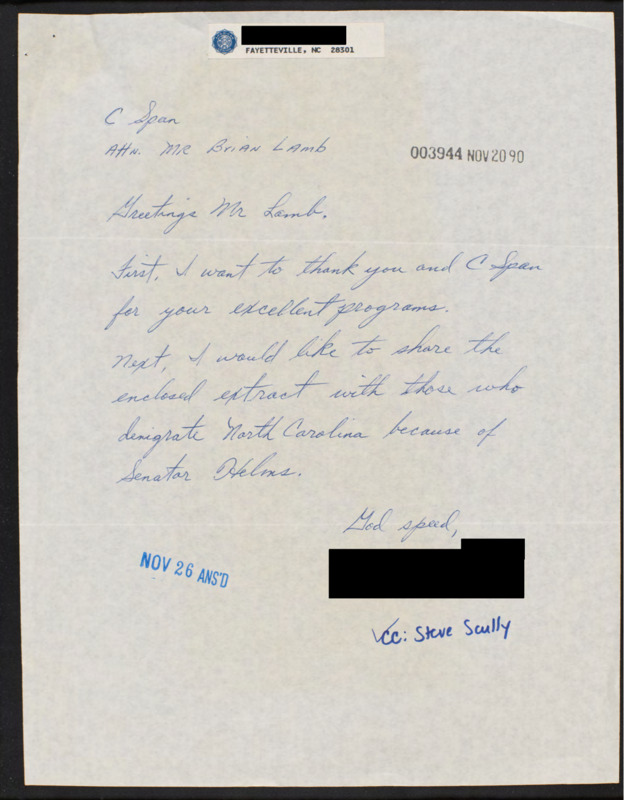 FAYETTEVILLE, NC 28301
C Span
Attn. Mr Brian Lamb
003944 NOV 20 90
Greetings Mr Lamb.
First, I want to thank you and C Span
for your excellent programs.
Next, I would like to share the
enclosed extract with those who
denigrate North Carolina because of
Senator Helms.
God speed,
NOV 26 ANS'D
✓CC: Steve Scully